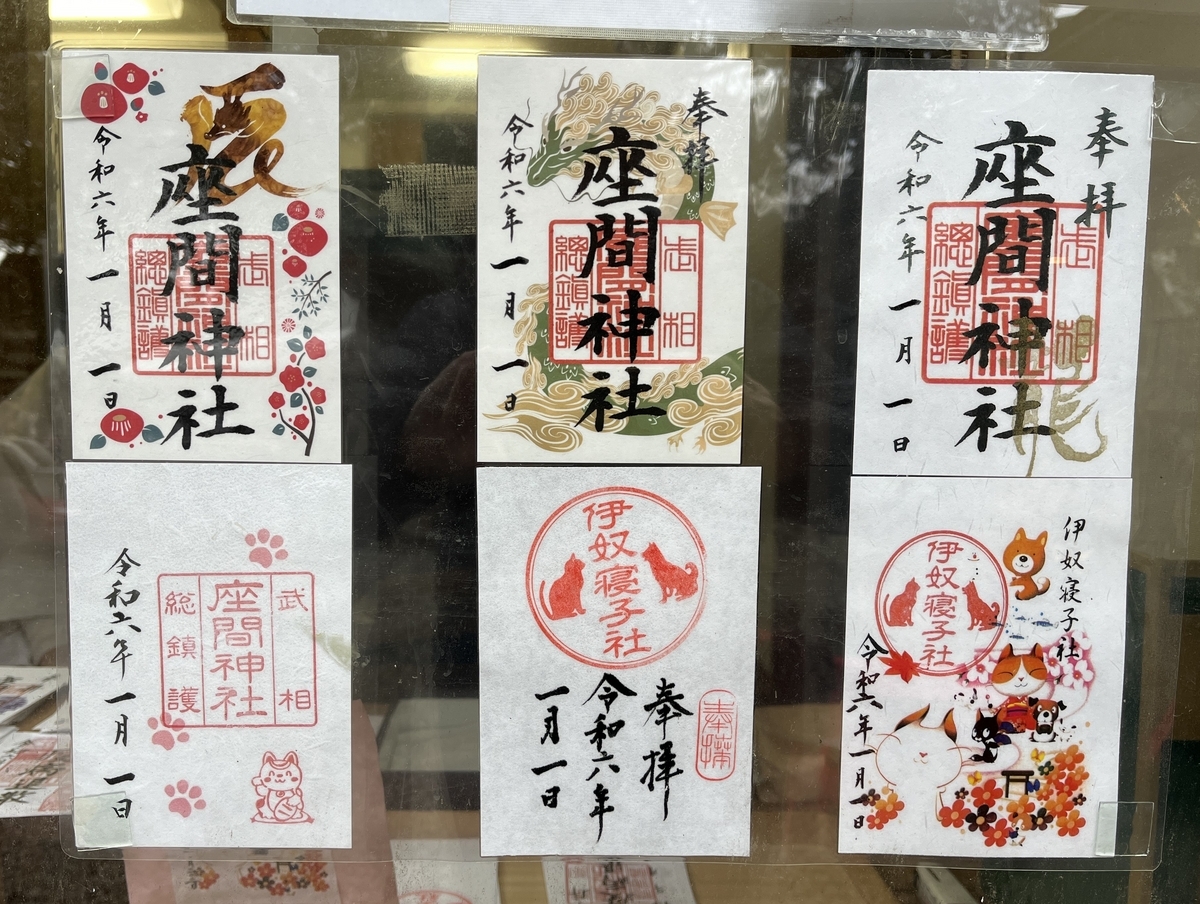 辰
座間神社
武相
總鎮護
令和六年一月一日
奉拝
座間神社
武相
總鎮護
令和六年一月一日
奉拝
座間神社
武相
總鎮護
龍
令和六年一月一日
武相
座間神社
総鎮護
令和六年一月一日
伊奴寝子社
奉拝
奉拝
令和六年
一月一日
伊奴寝子社
伊奴寝子社
令和六年一月一日